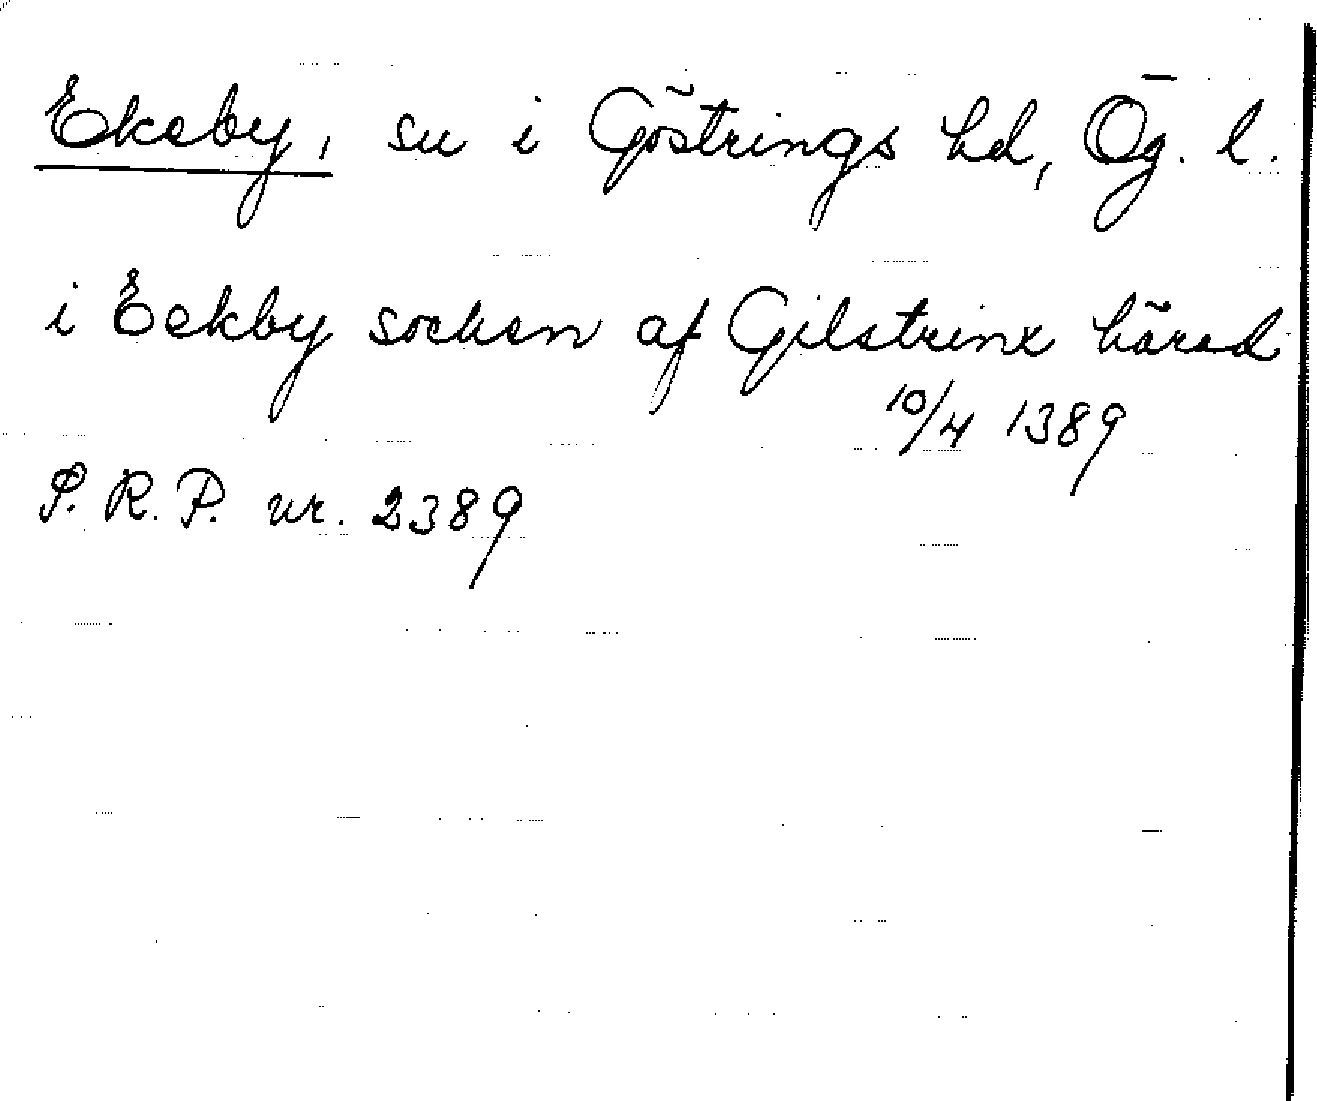 Ekeby, sn i Göstrings hd, Ög. l.
i Eekby socken af Gilstrinx härad
10/4 1389
S. R. P. nr. 2389